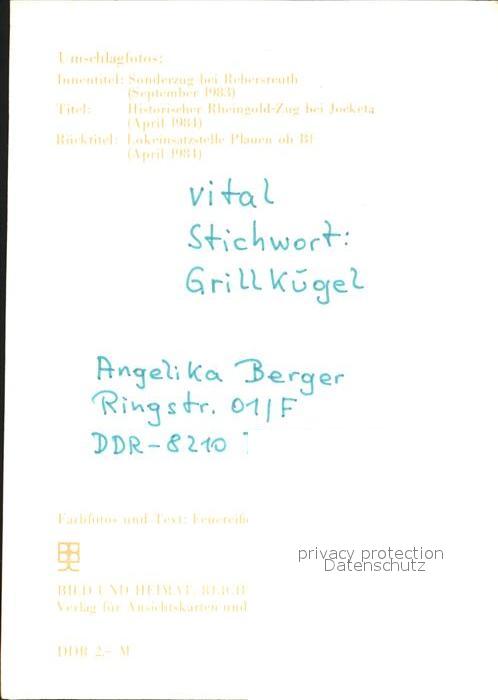 Umschlagfotos:
Innentitel: Sonderzug bei Rebersreuth
(September 1983)
Titel: Historischer Rheingold-Zug bei Jocketa
(April 1984)
Rücktitel: Lokeinsatzstelle Plauen ob Bf
(April 1984)
vital
Stichwort:
Grillkügel
Angelika Berger
Ringstr. 01/F
DDR-8210
Farbfotos und Text:
privacy protection
Datenschutz
BILD UND HEIMAT, REICH
Verlag für Ansichtskarten und
DDR 2,- M